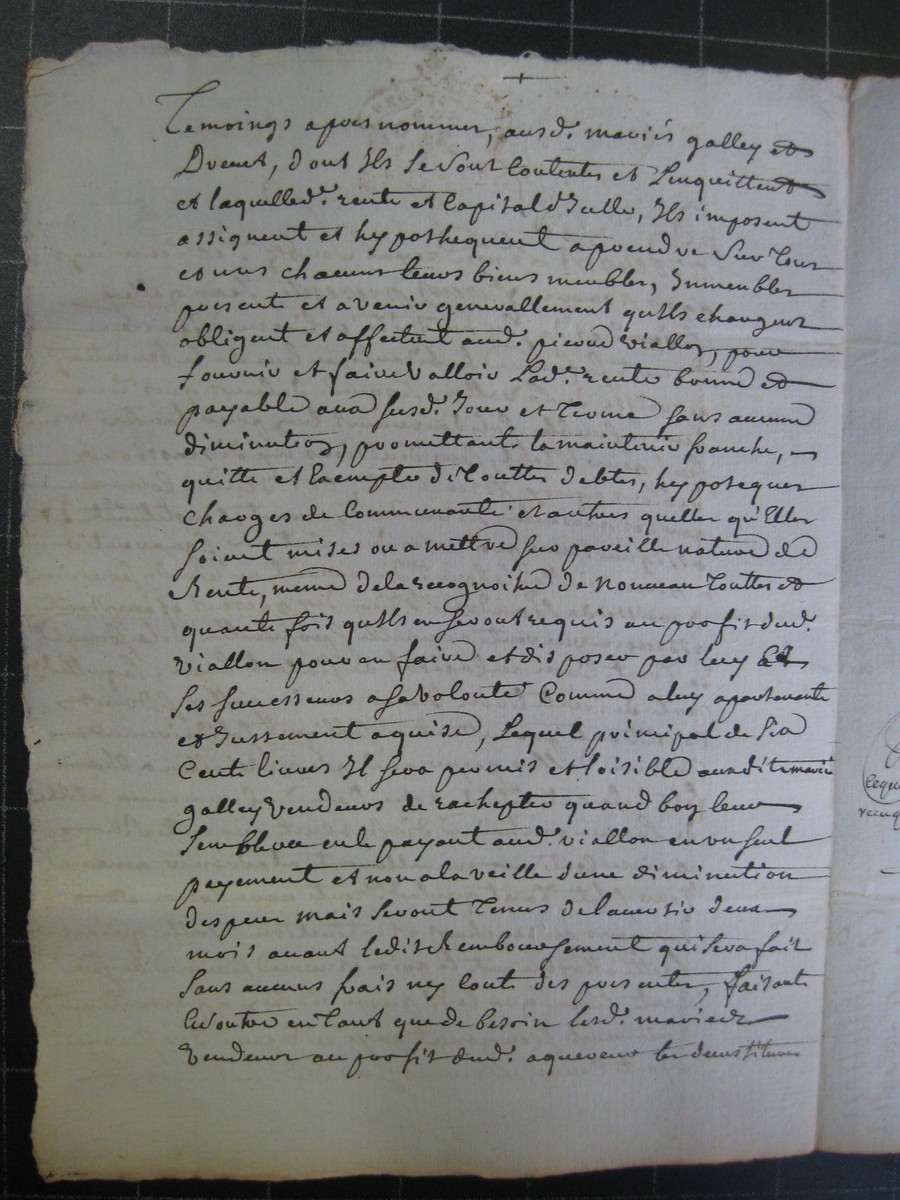 Temoings apres nommer, ausd. mariés galley et
Ducut, dont Ils se sont contentes et Lenquittent
et laquelled. rente et Capital d'Icelle, Ils imposent
assignent et hypothequent aprendre sur tous
et uns chacuns leurs biens meubles, Immeubles
present et avenir generallement qu'Ils chargent
obligent et affectent aud. pierre viallon, pour
fournir et faire valloir Lad. rente bonne et
payable aux susd. Jour et Terme sans aucune
diminution, promettants la maintenir franche,
quitte et Exempte de Touttes debtes, hypoteques
charges de Communauté et autres quelles qu'Elles
soient mises ou a mettre sur pareille nature de
Rente, meme de la recognoitre de nouveau Touttes et
quante fois qu'Ils en seront requis au profit dud.
viallon pour en faire et disposer par luy Et
ses successeurs a sa volonté Comme a luy apartenante
et Justement aquise, Lequel principal de Six
Cents livres Il sera permis et loisible ausdits mariés
galley vendeurs de rachepter quand bon leur
semblera en le payant aud. viallon en un seul
payement et non a la veille d'une diminution
d'espeice mais seront Tenus de lavertir deux
mois avant ledit Remboursement qui sera fait
sans aucuns frais ny Coute des presentes, faisants
Et outre en Tant que de besoin lesd. mariés
vendeurs au profit dud. aquereur les demstitures